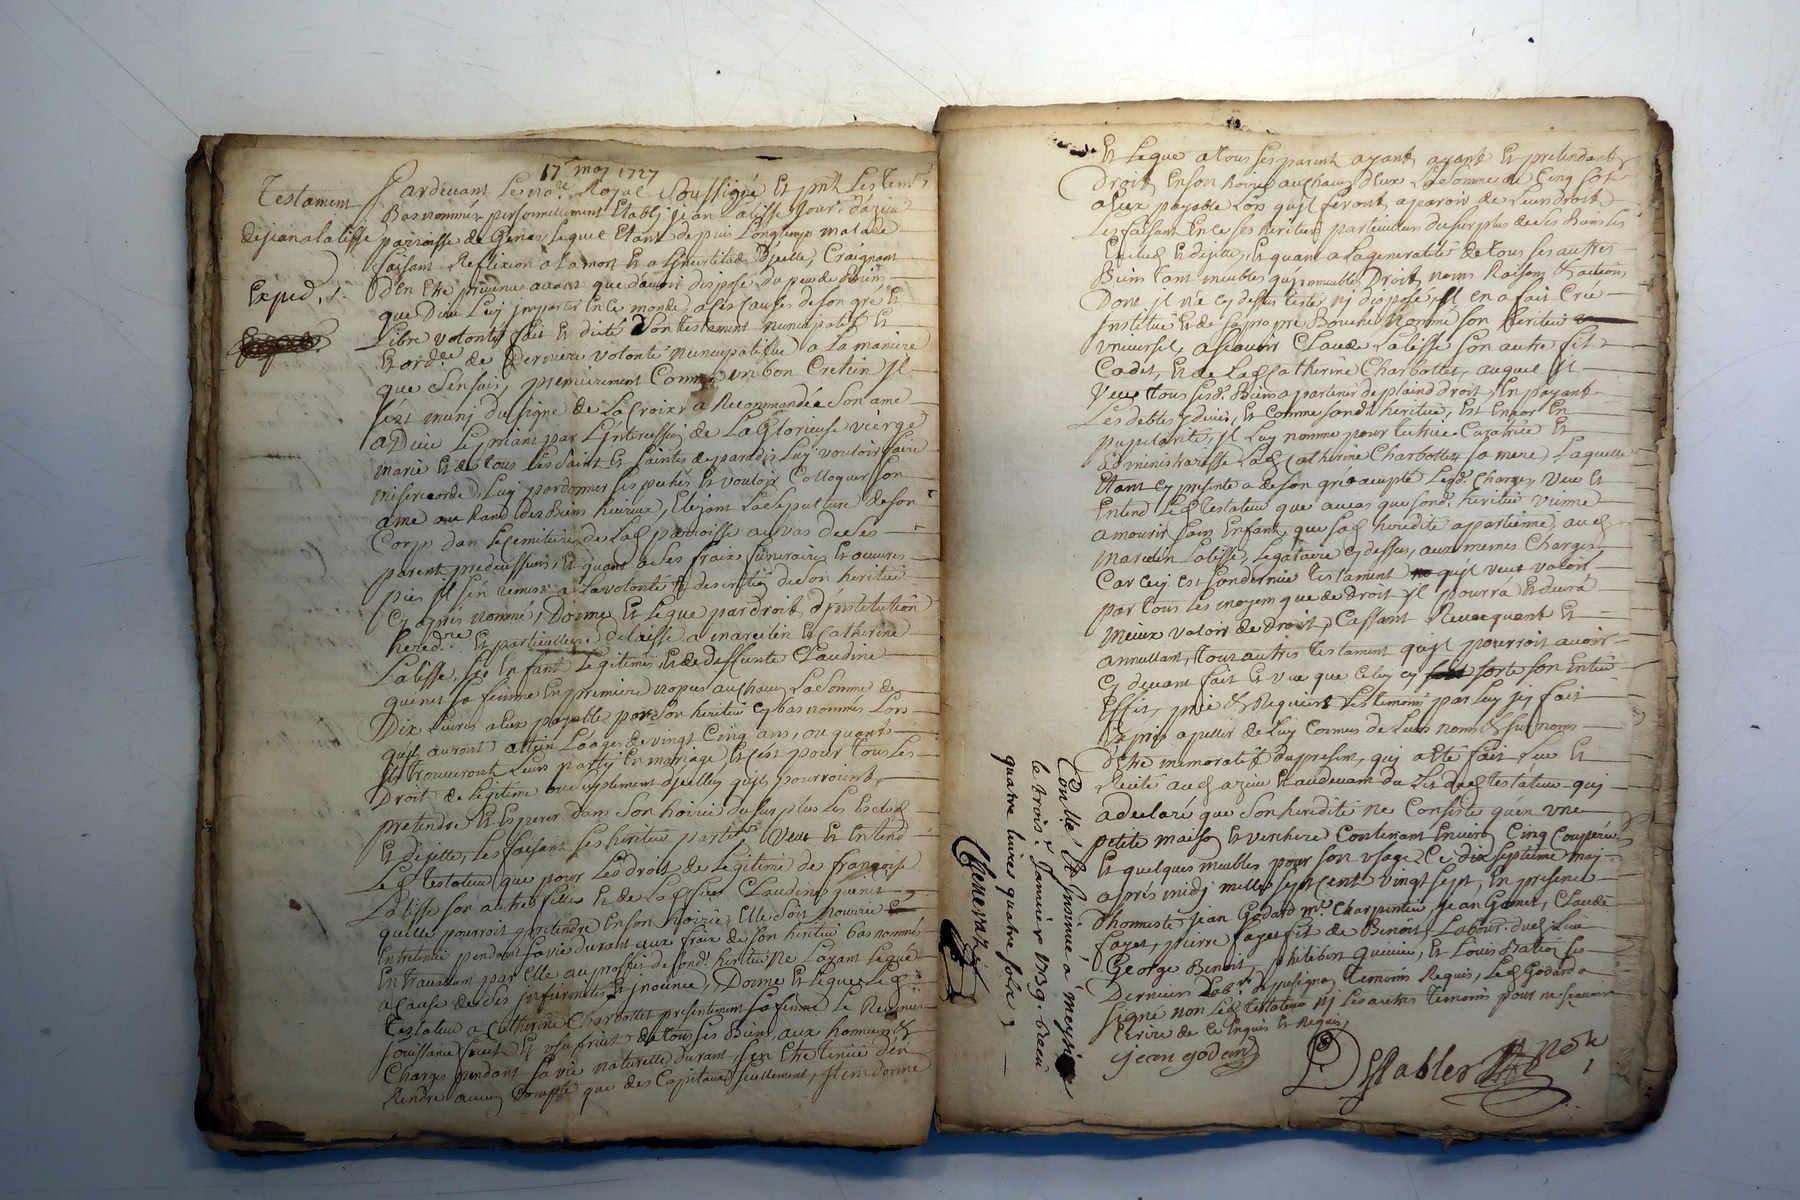 17e may 1727
Testament
de jean labisse
Exped. 1.
Pardevant le no.re Royal soussigné et pnt les tem.s
Bas nommés personnellement Etably jean labisse labour. d'azieu
parroisse de Genas lequel Etant depuis longtemps malade
faisant Reflexion a la mort Et a l'incertitude d'jcelle, Craignant
d'En Etre prevenu avant que d'avoir disposé du peu de biens
que Dieu luy jmpartir En ce monde, a ces Causes de son gré Et
libre volonté, fait Et dicté son testament nuncupatif Et
Et ord.re de derniere volonté nuncupatifve a la maniere
que s'ensuit, premierement Comme un bon Cretien jl
s'est muni du signe de la Croix, a Recommandée son ame
a Dieu le priant par l'jntercession de la Glorieuse vierge
marie Et de tous les saint Et saintes de paradis luy vouloir faire
misericorde, luy pardonner ses pechés Et vouloir Colloquer son
ame au Rand des Biens heureux, Elisant la sepulture de son
Corps dan le cemitiere de lad parroisse au vas de ses
parent predecesseurs, Et quant a ses fraix funeraires Et oeuvres
pies jl s'en remet a la volonté Et discretion de son heritier
Cy aprés nommé, Donne Et legue par droit d'jnstitution
hered.re Et particulliere delaisse a marcelin Et Catherine
labisse, ses Enfant legitimes Et de deffunte Claudine
quinet sa femme En premiere nopces au chacun la somme de
Dix livres a Eux payable par son heritier cy bas nommés lors
qu'jls auront attein l'aages de vingt cinq ans, ou quant
jls trouveront leurs party En mariage, Et c'est pour tous les
Droit de legitime ou suplement d'jcelles qu'jls pourroient
pretendre Et Esperer dans son hoirie du surplus les Exclud
Et dejette, les faisant ses heritier partic.rs Veut Et Entend
led testateur que pour les droit de legitime de francoise
labisse son autre fille Et de lad feue Claudine quinet
qu'elle pourroit pretendre En son hoirie, Elle soit nourrie Et
Entretenüe pendant sa vie durant aux fraix de son heritier bas nommé
En travaillant par Elle au proffit de sond. heritier Ne layant legué
a Cause de ses jnfirmités Et jnocence, Donne Et legue led
testateur a Catherine Charbottet presentement sa femme le Revenu
Jouissance fruit Et usufruit de tous ses Biens, aux honneurs Et
Charges pendant sa vie naturelle durant, sen Etre tenüe d'En
Rendre aucun Compte que des Capitaux seullement, jtem donne
Et legue a tous ses parent ayant, ayant Et pretendant
droit En son hoirie au chacun d'Eux la somme de Cinq sols
a Eux payable lors qu'jls feront aparoir de leur droit
les faisant En ce ses heritier particuliers du surplus de ses Biens les
Exclud Et dejette, Et quant a la generalité de tous ses auttres
Biens tant meubles qu'jmmeubles Droit noms Raisons Et actions
Dont jl n'a cy dessus testé nj disposé, jl en a fait Créé
Institué Et de sa propre Bouche Nommé son heritier
Universel, a scavoir Claude labisse son autre fils
Cadet, Et de lad Catherine Charbottet, auquel jl
Veut tous sesd. Biens apartenir de plaind droit, En payant
les debtes d'jceux, Et Comme sond. heritier, Est Encor En
pupilarité, jl luy nomme pour tutrice Curatrice Et
administraresse lad Catherine Charbottet sa mere, laquelle
Etant cy presente a de son gré accepté lesd. Charges, Veut Et
Entend led testateur que au cas que sond. heritier Vienne
a mourir sans Enfant, que sad heredité appartienne aud
Marcelin labisse, legataire cy dessus, aux memes Charges
Car cecy est son dernier testament qu'jl veut valoir
par tous les moyens que de Droit jl pourra Et devra
Mieux valoir de Droit, Cassant Revocquant Et
annullant, tout autres testament qu'jl pourroit avoir
cy devant fait Et veut que celuy cy sorte son Entier
Effet, prié Et Requiert les temoins par luy jcy fait
Et pris apeller de luy Connus de leurs noms Et surnoms
d'etre memoratif du present, qui a eté fait, leu Et
Recité aud azieu Et au devant du lit dud testateur qui
a declaré que son heredité ne Consiste qu'en une
petite maison Et verchere Contenant Environ Cinq Couperées
Et quelques meubles pour son usage, Ce dix septieme may
aprés midj mille sept cent vingt sept, En presence
d'honneste jean Godard m.e Charpentier jean Gonet, Claude
fayet, pierre fayet fils de Benoit labour. dud lieu
George Benoit, philibert quinieu, Et Louis Bation les
Derniers lab.rs de pusignan temoins Requis, led Godard a
signé non led testateur nj les autres temoins pour ne scavoir
Ecrire de ce Enquis Et Requis,
jean godard
DeStables No.re
Con.lle Et Insinué a meyzieu
le trois.e Janvier 1739. Receu
quatre livres quatre sols
Chenevaz